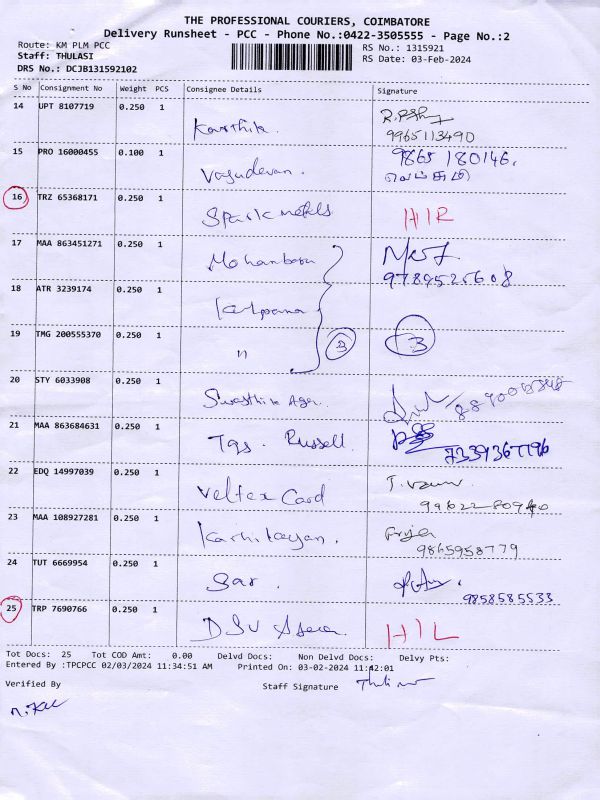 THE PROFESSIONAL COURIERS, COIMBATORE
Delivery Runsheet - PCC - Phone No.:0422-3505555 - Page No.:2
Route: KM PLM PCC
RS No.: 1315921
Staff: THULASI
RS Date: 03-Feb-2024
DRS No.: DCJB131592102
S No Consignment No Weight PCS Consignee Details Signature
14 UPT 8107719 0.250 1 Karthik.
9965113490
15 PRO 16000455 0.100 1 Vasudevan. 9865 180146.
16 TRZ 65368171 0.250 1 Spark metals
17 MAA 863451271 0.250 1
9789525608
18 ATR 3239174 0.250 1 Kalpana
19 TMG 200555370 0.250 1 " 3 3
20 STY 6033908 0.250 1
21 MAA 863684631 0.250 1 Tqs. Russell.
22 EDQ 14997039 0.250 1 Veltex Card
23 MAA 108927281 0.250 1
9865958779
24 TUT 6669954 0.250 1 Sar.
9858585533
25 TRP 7690766 0.250 1 DSV
Tot Docs: 25 Tot COD Amt: 0.00 Delvd Docs: Non Delvd Docs: Delvy Pts:
Entered By :TPCPCC 02/03/2024 11:34:51 AM Printed On: 03-02-2024 11:42:01
Verified By Staff Signature